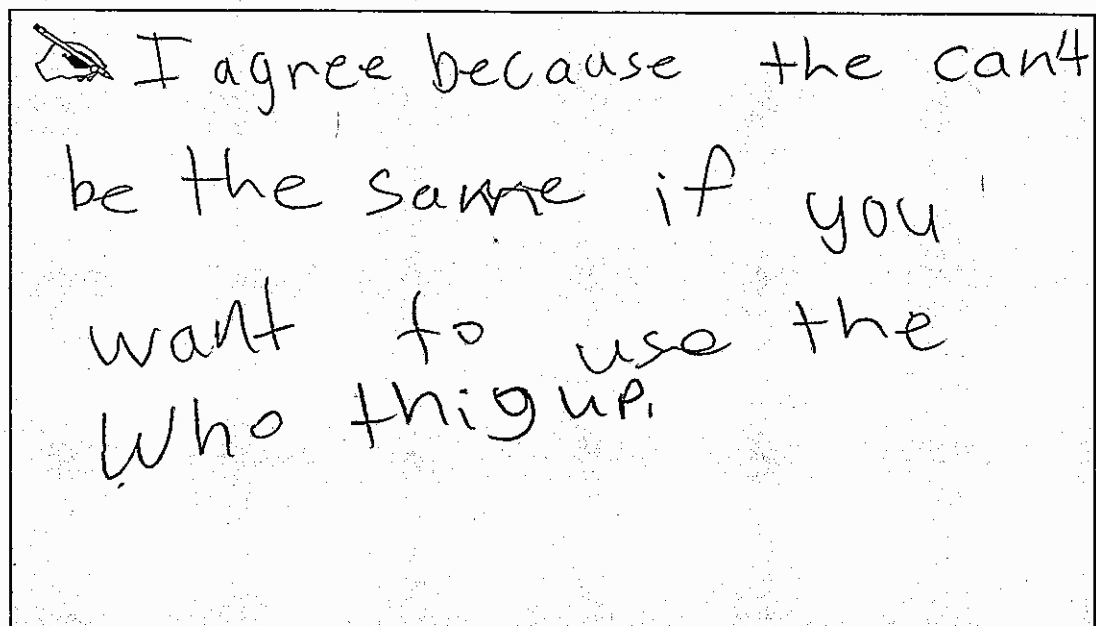 I agree because the can't
be the same if you
want to use the
Who thig up.